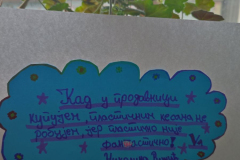 Кад у продавници
купујем, пластичну кесу не
робујем јер пластика није
фантастична!